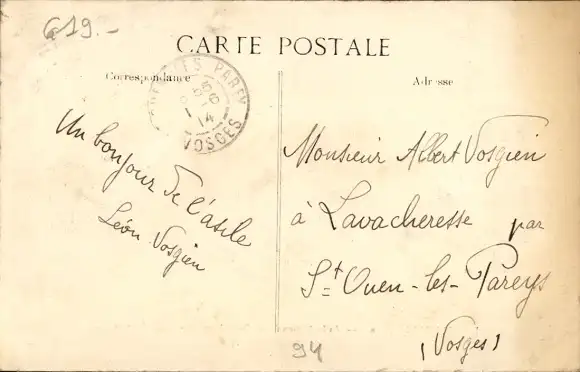 619.-
CARTE POSTALE
Correspondance
Adresse
VOSGES
Un bonjour de l'asile
Léon Vosgien
Monsieur Albert Vosgien
à Lavacheresse par
St Ouen-les-Pareys
(Vosges)
94